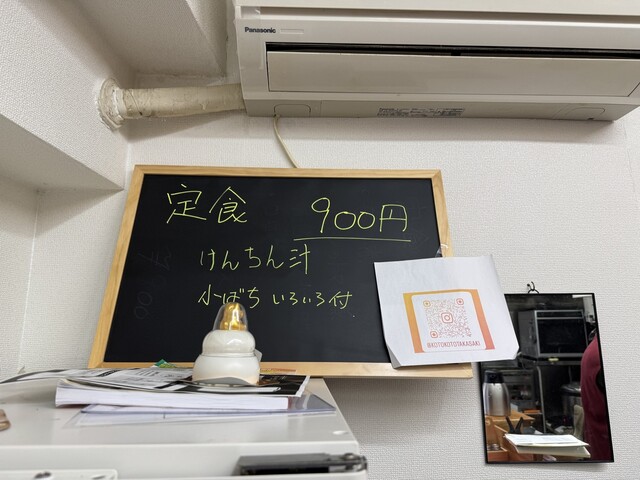 Panasonic
定食 900円
けんちん汁
小ばち いろいろ付
@KOTOKOTOTAKASAKI